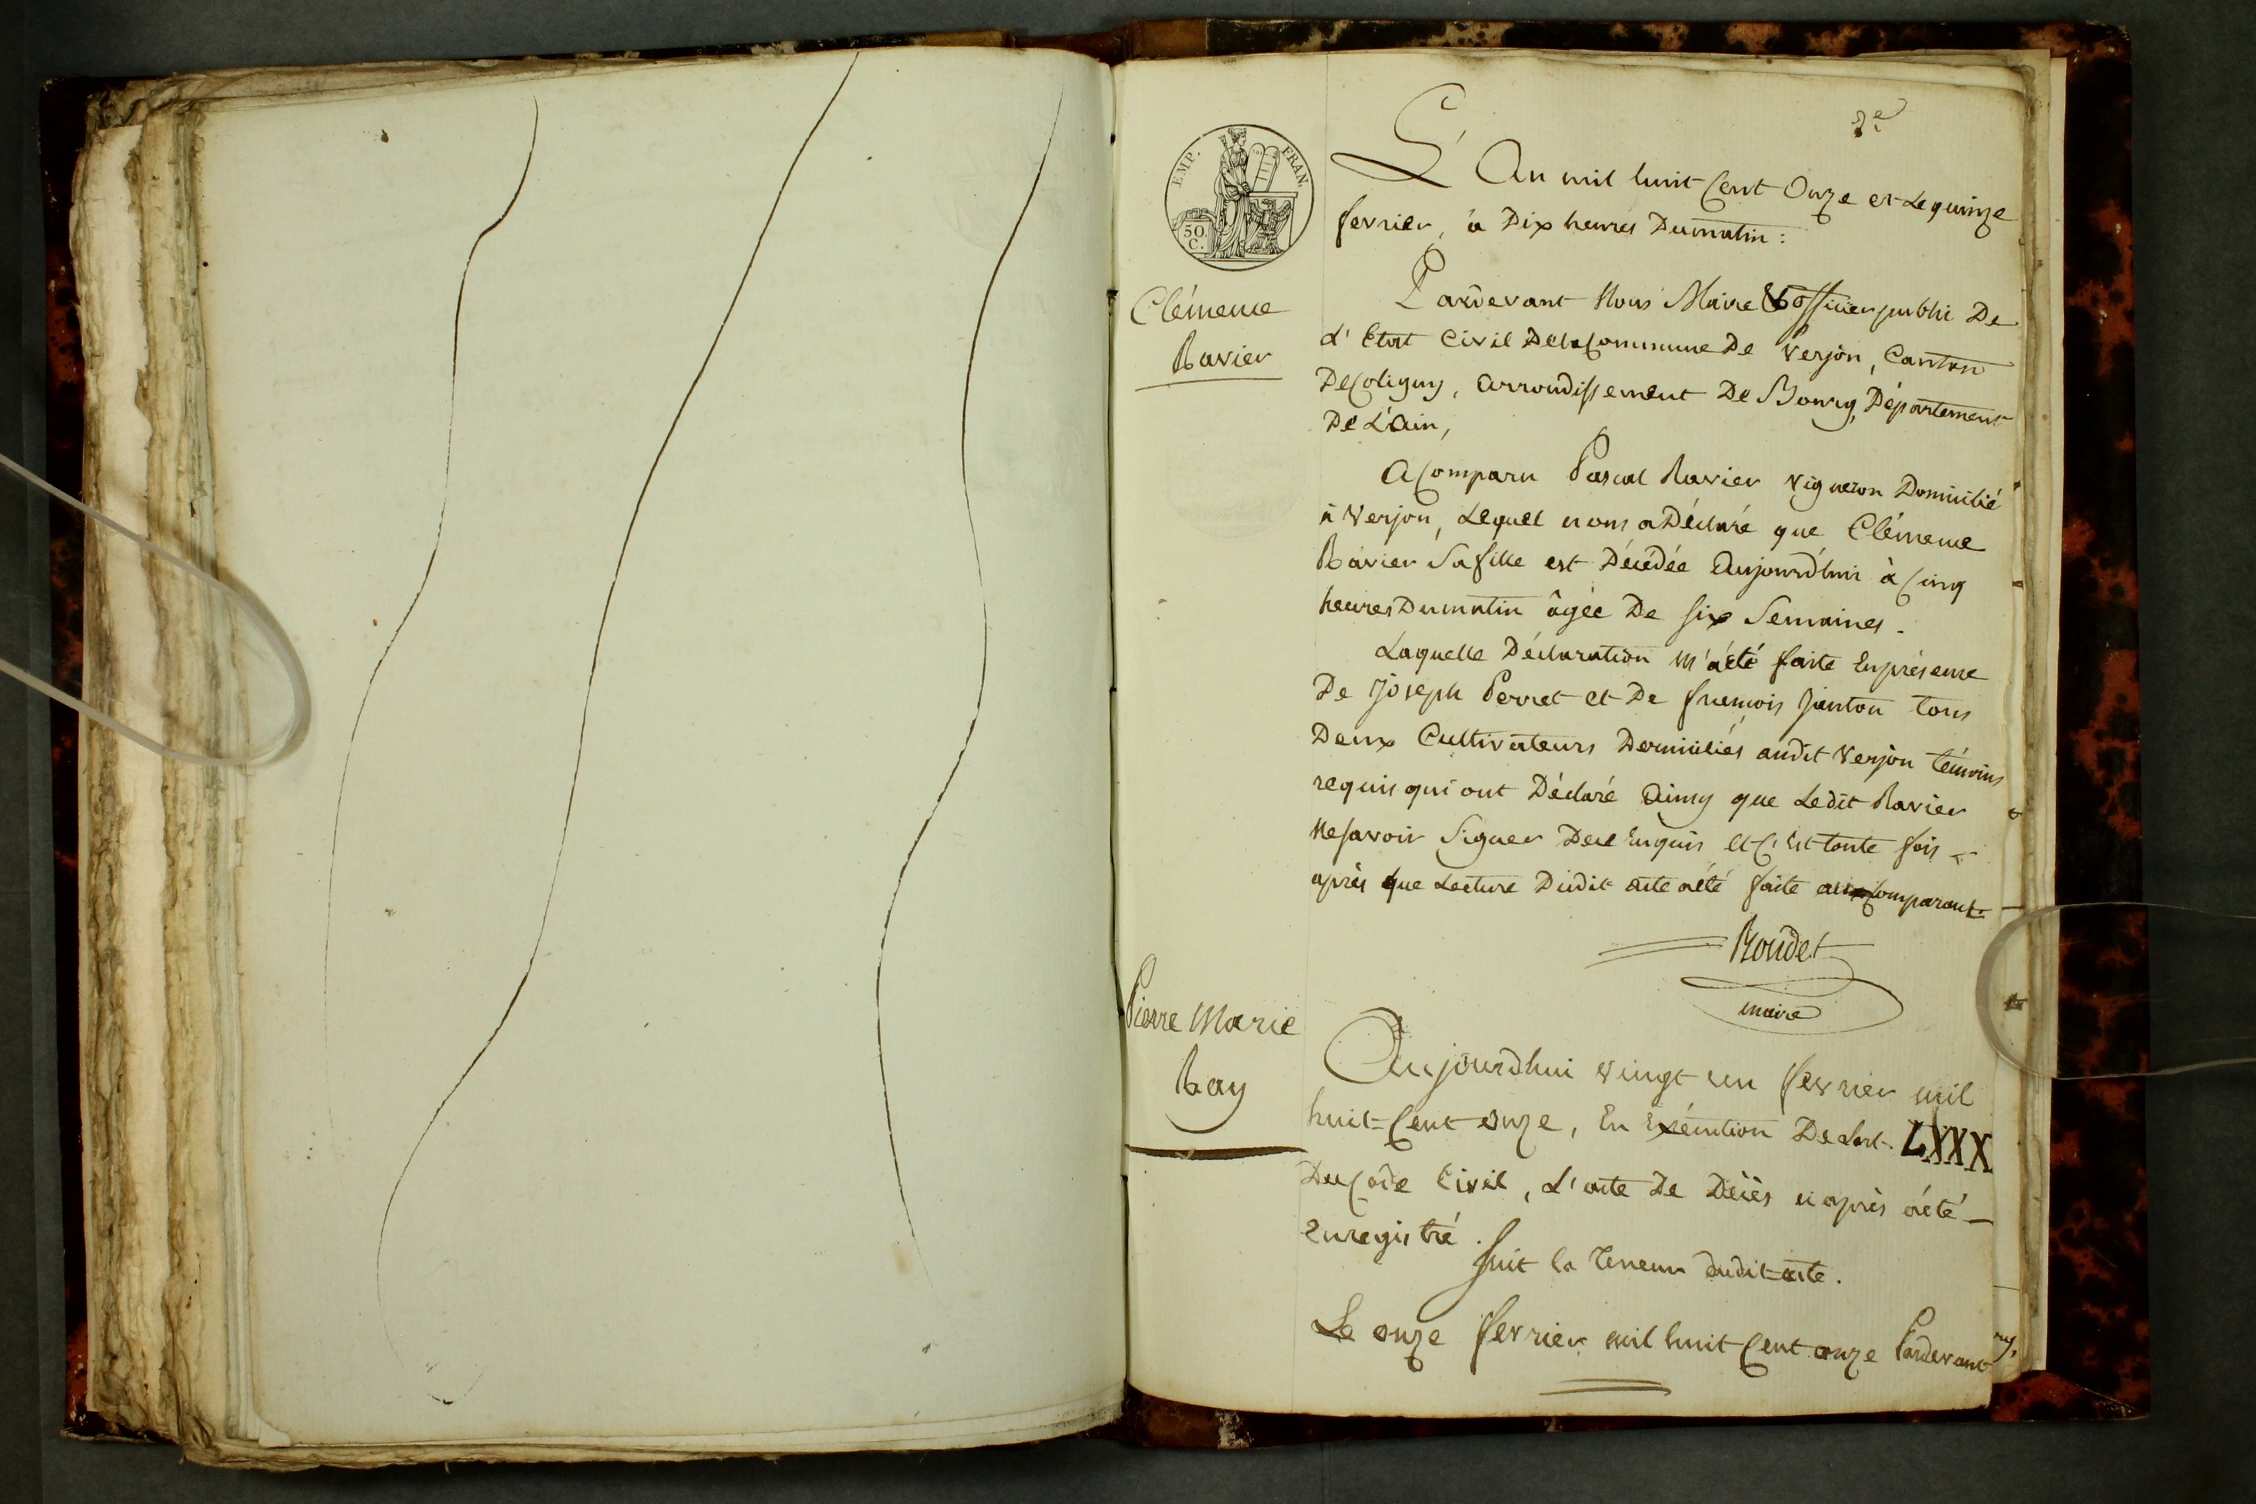 2e
EMP. FRAN.
50. C.
L'An mil huit Cent Onze et Le quinze
fevrier, à Dix heures Dumatin :
Clémence
Ravier
Pardevant Nous Maire & officier public De
L'Etat Civil Dela Commune De Verjon, Canton
DeColigny, arrondissement De Bourg, Département
De L'Ain,
A Comparu Pascal Ravier vigneron Domicilié
à Verjon, Lequel nous a Déclaré que Clémence
Ravier Sa fille est Décédée Aujourd'hui à Cinq
heures Dumatin âgée De Six Semaines.
Laquelle Déclaration m'aété faite Enprésence
De Joseph Perret et De francois Janton tous
Deux Cultivateurs Domiciliés audit Verjon témoins
requis qui ont Déclaré Ainsy que Ledit Ravier
Nesavoir Signer Dece Enquis et C'Est toute fois
après que Lecture Dudit acte aété faite aux Comparant.
Roudet
maire
Pierre Marie
Ray
Aujourdhui vingt un fevrier mil
huit=Cent onze, En Exécution De Lart. LXXX
Du Code Civil, L'acte De Décès ci après aété
Enregistré.
Suit la Teneur dudit acte.
Le onze fevrier mil huit Cent onze Pardevant